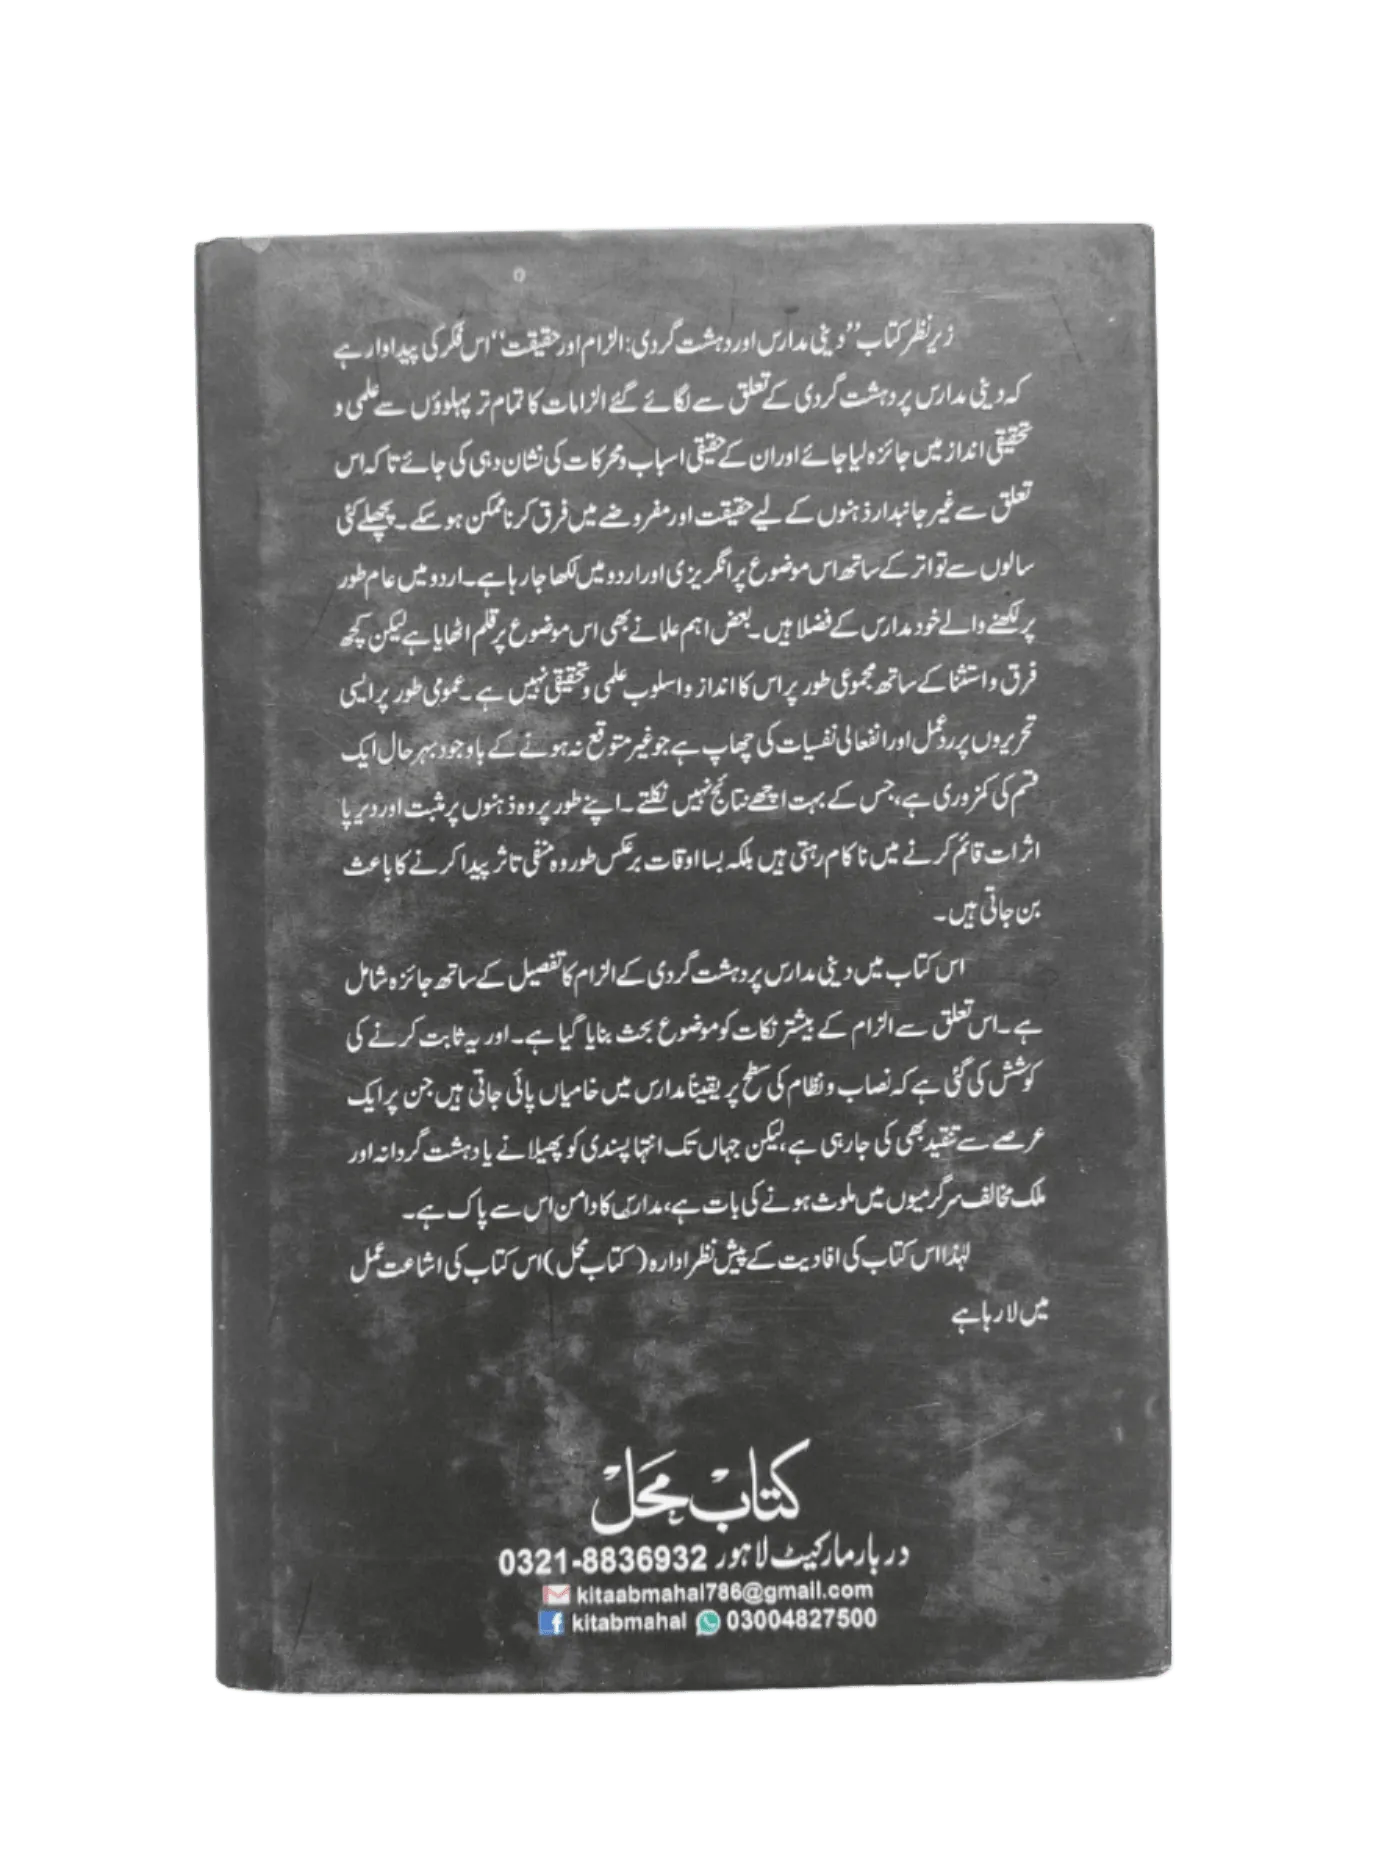 زیر نظر کتاب ’’دینی مدارس اور دہشت گردی: الزام اور حقیقت‘‘ اس فکر کی پیداوار ہے
کہ دینی مدارس پر دہشت گردی کے تعلق سے لگائے گئے الزامات کا تمام تر پہلوؤں سے علمی و
تحقیقی انداز میں جائزہ لیا جائے اور ان کے حقیقی اسباب و محرکات کی نشان دہی کی جائے تاکہ اس
تعلق سے غیر جانبدار ذہنوں کے لیے حقیقت اور مفروضے میں فرق کرنا ممکن ہو سکے۔ پچھلے کئی
سالوں سے تواتر کے ساتھ اس موضوع پر انگریزی اور اردو میں لکھا جا رہا ہے۔ اردو میں عام طور
پر لکھنے والے خود مدارس کے فضلا ہیں۔ بعض اہم علما نے بھی اس موضوع پر قلم اٹھایا ہے لیکن کچھ
فرق و استثنا کے ساتھ مجموعی طور پر اس کا انداز و اسلوب علمی و تحقیقی نہیں ہے۔ عمومی طور پر ایسی
تحریروں پر ردعمل اور انفعالی نفسیات کی چھاپ ہے جو غیر متوقع نہ ہونے کے باوجود بہر حال ایک
قسم کی کمزوری ہے، جس کے بہت اچھے نتائج نہیں نکلتے۔ اپنے طور پر وہ ذہنوں پر مثبت اور دیرپا
اثرات قائم کرنے میں ناکام رہتی ہیں بلکہ بسا اوقات برعکس طور وہ منفی تاثر پیدا کرنے کا باعث
بن جاتی ہیں۔
اس کتاب میں دینی مدارس پر دہشت گردی کے الزام کا تفصیل کے ساتھ جائزہ شامل
ہے۔ اس تعلق سے الزام کے بیشتر نکات کو موضوع بحث بنایا گیا ہے۔ اور یہ ثابت کرنے کی
کوشش کی گئی ہے کہ نصاب و نظام کی سطح پر یقیناً مدارس میں خامیاں پائی جاتی ہیں جن پر ایک
عرصے سے تنقید بھی کی جا رہی ہے، لیکن جہاں تک انتہا پسندی کو پھیلانے یا دہشت گردانہ اور
ملک مخالف سرگرمیوں میں ملوث ہونے کی بات ہے، مدارس کا دامن اس سے پاک ہے۔
لہٰذا اس کتاب کی افادیت کے پیش نظر ادارہ (کتاب محل) اس کتاب کی اشاعت عمل
میں لا رہا ہے
کتاب محل
دربار مارکیٹ لاہور 0321-8836932
kitaabmahal786@gmail.com
kitabmahal 03004827500